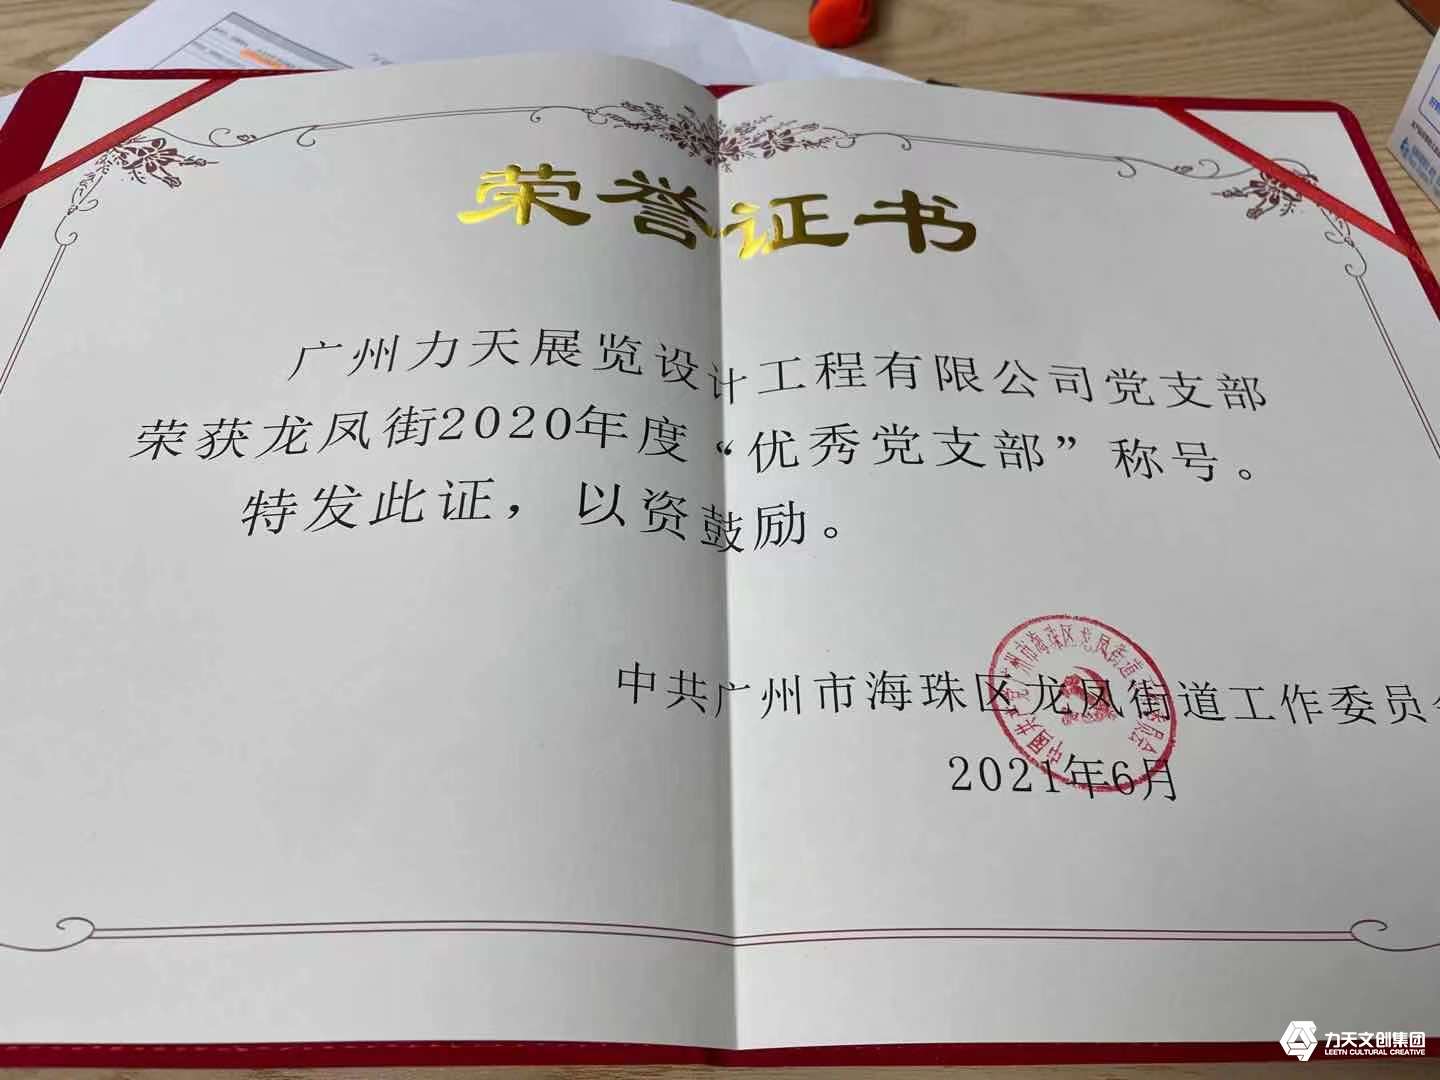 荣誉证书
广州力天展览设计工程有限公司党支部
荣获龙凤街2020年度“优秀党支部”称号。
特发此证，以资鼓励。
中共广州市海珠区龙凤街道工作委员
2021年6月
力天文创集团
LEETN CULTURAL CREATIVE